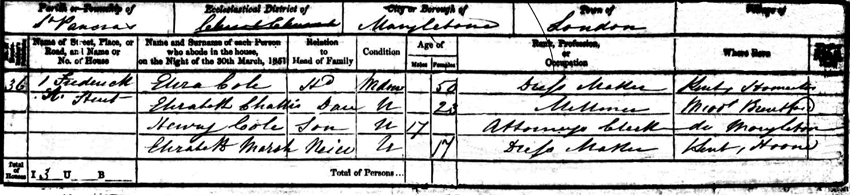 Parish or Township of Ecclesiastical District of City or Borough of Town of Village of
St Pancras Marylebone London
Name of Street, Place, or Road, and Name or No. of House
Name and Surname of each Person who abode in the house, on the Night of the 30th March, 1851
Relation to Head of Family
Condition
Age of
Males Females
Rank, Profession, or Occupation
Where Born
36 1 Frederick Eliza Cole Hd 50 Dress Maker Kent,
Street Elizabeth Daur U 23 Milliner Middx Brentford
Henry Cole Son U 17 Attorneys Clerk do Marylebone
Elizabeth Marsh Neice U 17 Dress Maker Kent,
Total of Houses I 3 U B Total of Persons